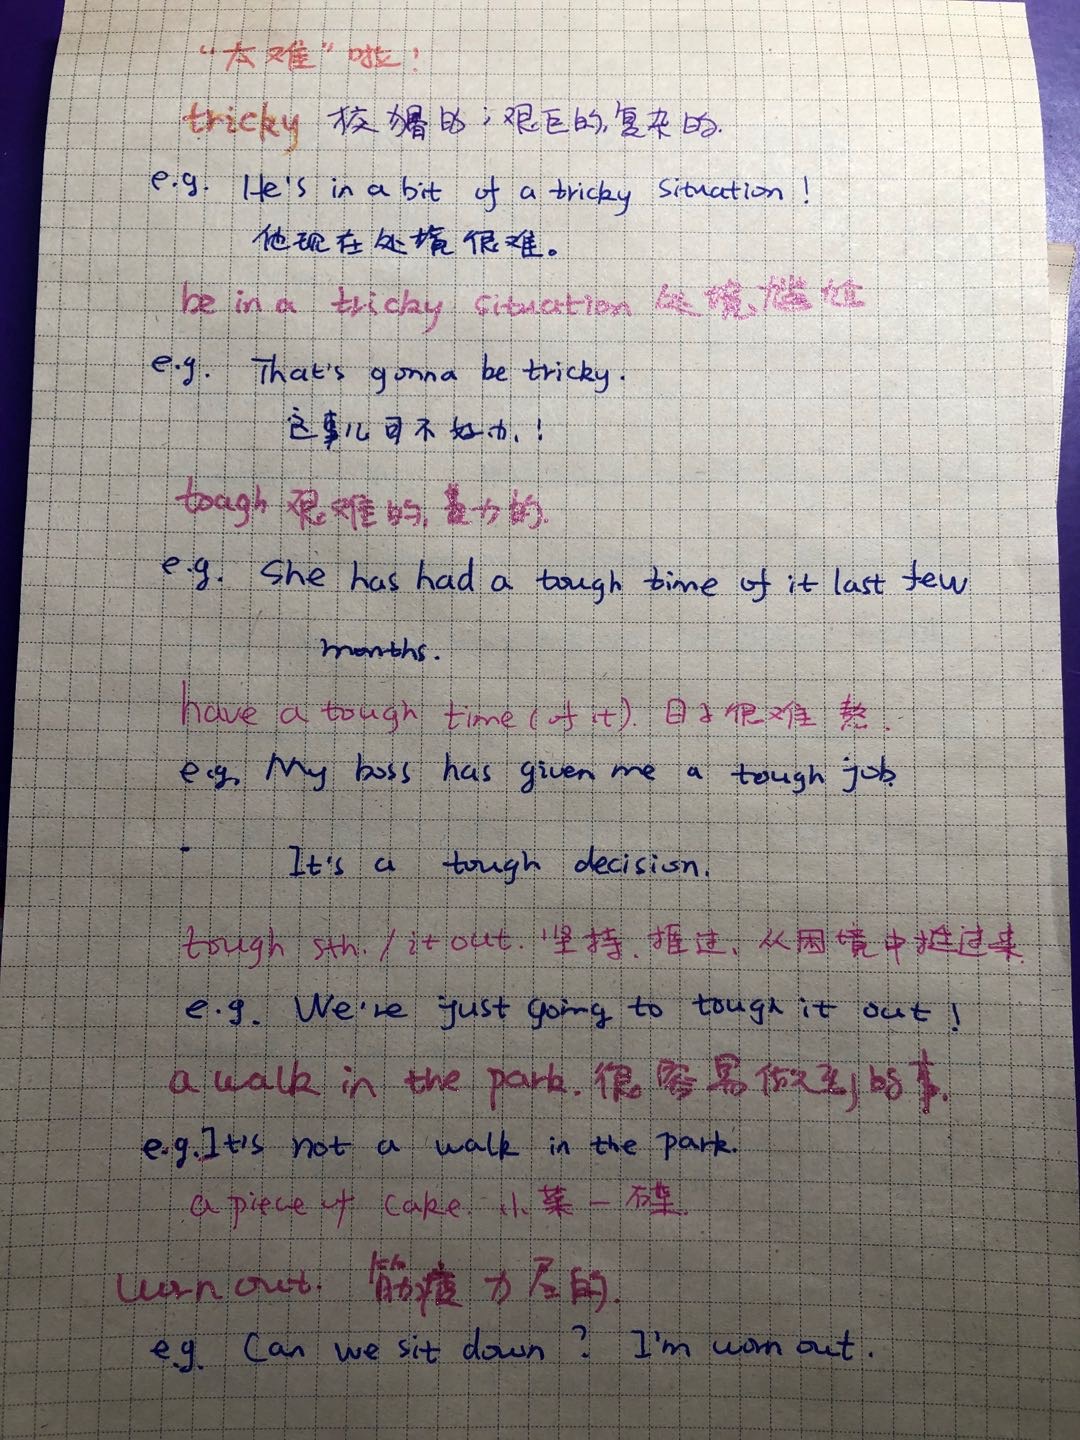 “太难”啦！
tricky 狡猾的；艰巨的,复杂的.
e.g. He's in a bit of a tricky situation!
他现在处境很难。
be in a tricky situation 处境尴尬
e.g. That's gonna be tricky.
这事儿可不好办.!
tough 艰难的,费力的.
e.g. She has had a tough time of it last few
months.
have a tough time (of it). 日子很难熬.
e.g. My boss has given me a tough job.
It's a tough decision.
tough sth. / it out. 坚持.挺过、从困境中挺过来
e.g. We're just going to tough it out!
a walk in the park. 很容易做到的事.
e.g. It's not a walk in the park.
a piece of cake. 小菜一碟.
worn out. 筋疲力尽的.
e.g. Can we sit down? I'm worn out.